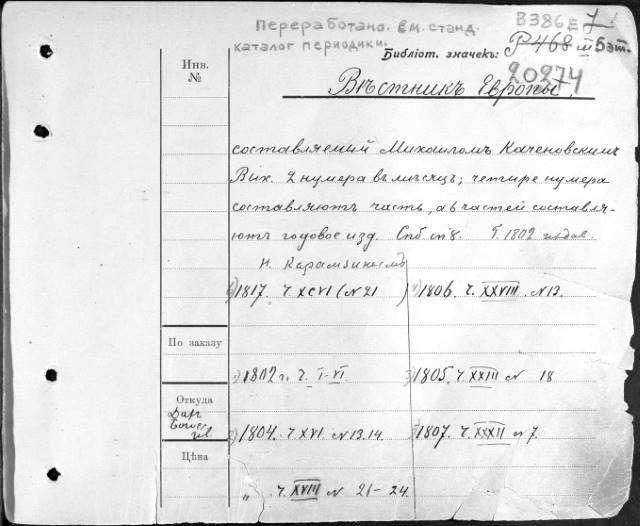 Переработано. см. станд.
каталог периодики.
В386Е 7
Библіот. значекъ: Р468 III 5 эт.
20274
Инв.
№
Вѣстникъ Европы.
составляемый Михаиломъ Каченовскимъ
Вых. 2 нумера въ мѣсяцъ; четыре нумера
составляютъ часть, а 6 частей составля-
ютъ годовое изд. Спб. 8. 1802 издав.
Н. Карамзинымъ
1817. Ч. XCVI (N 21) 1806. Ч. XXVIII. N 13.
По заказу
1802 г. Ч. I-VI 3) 1805. Ч. XXIII N 18
Откуда
Дар
2) 1804. Ч. XVI. N 13.14. 1807. Ч. XXXII N 7.
Цѣна
„ Ч. XVIII N 21-24